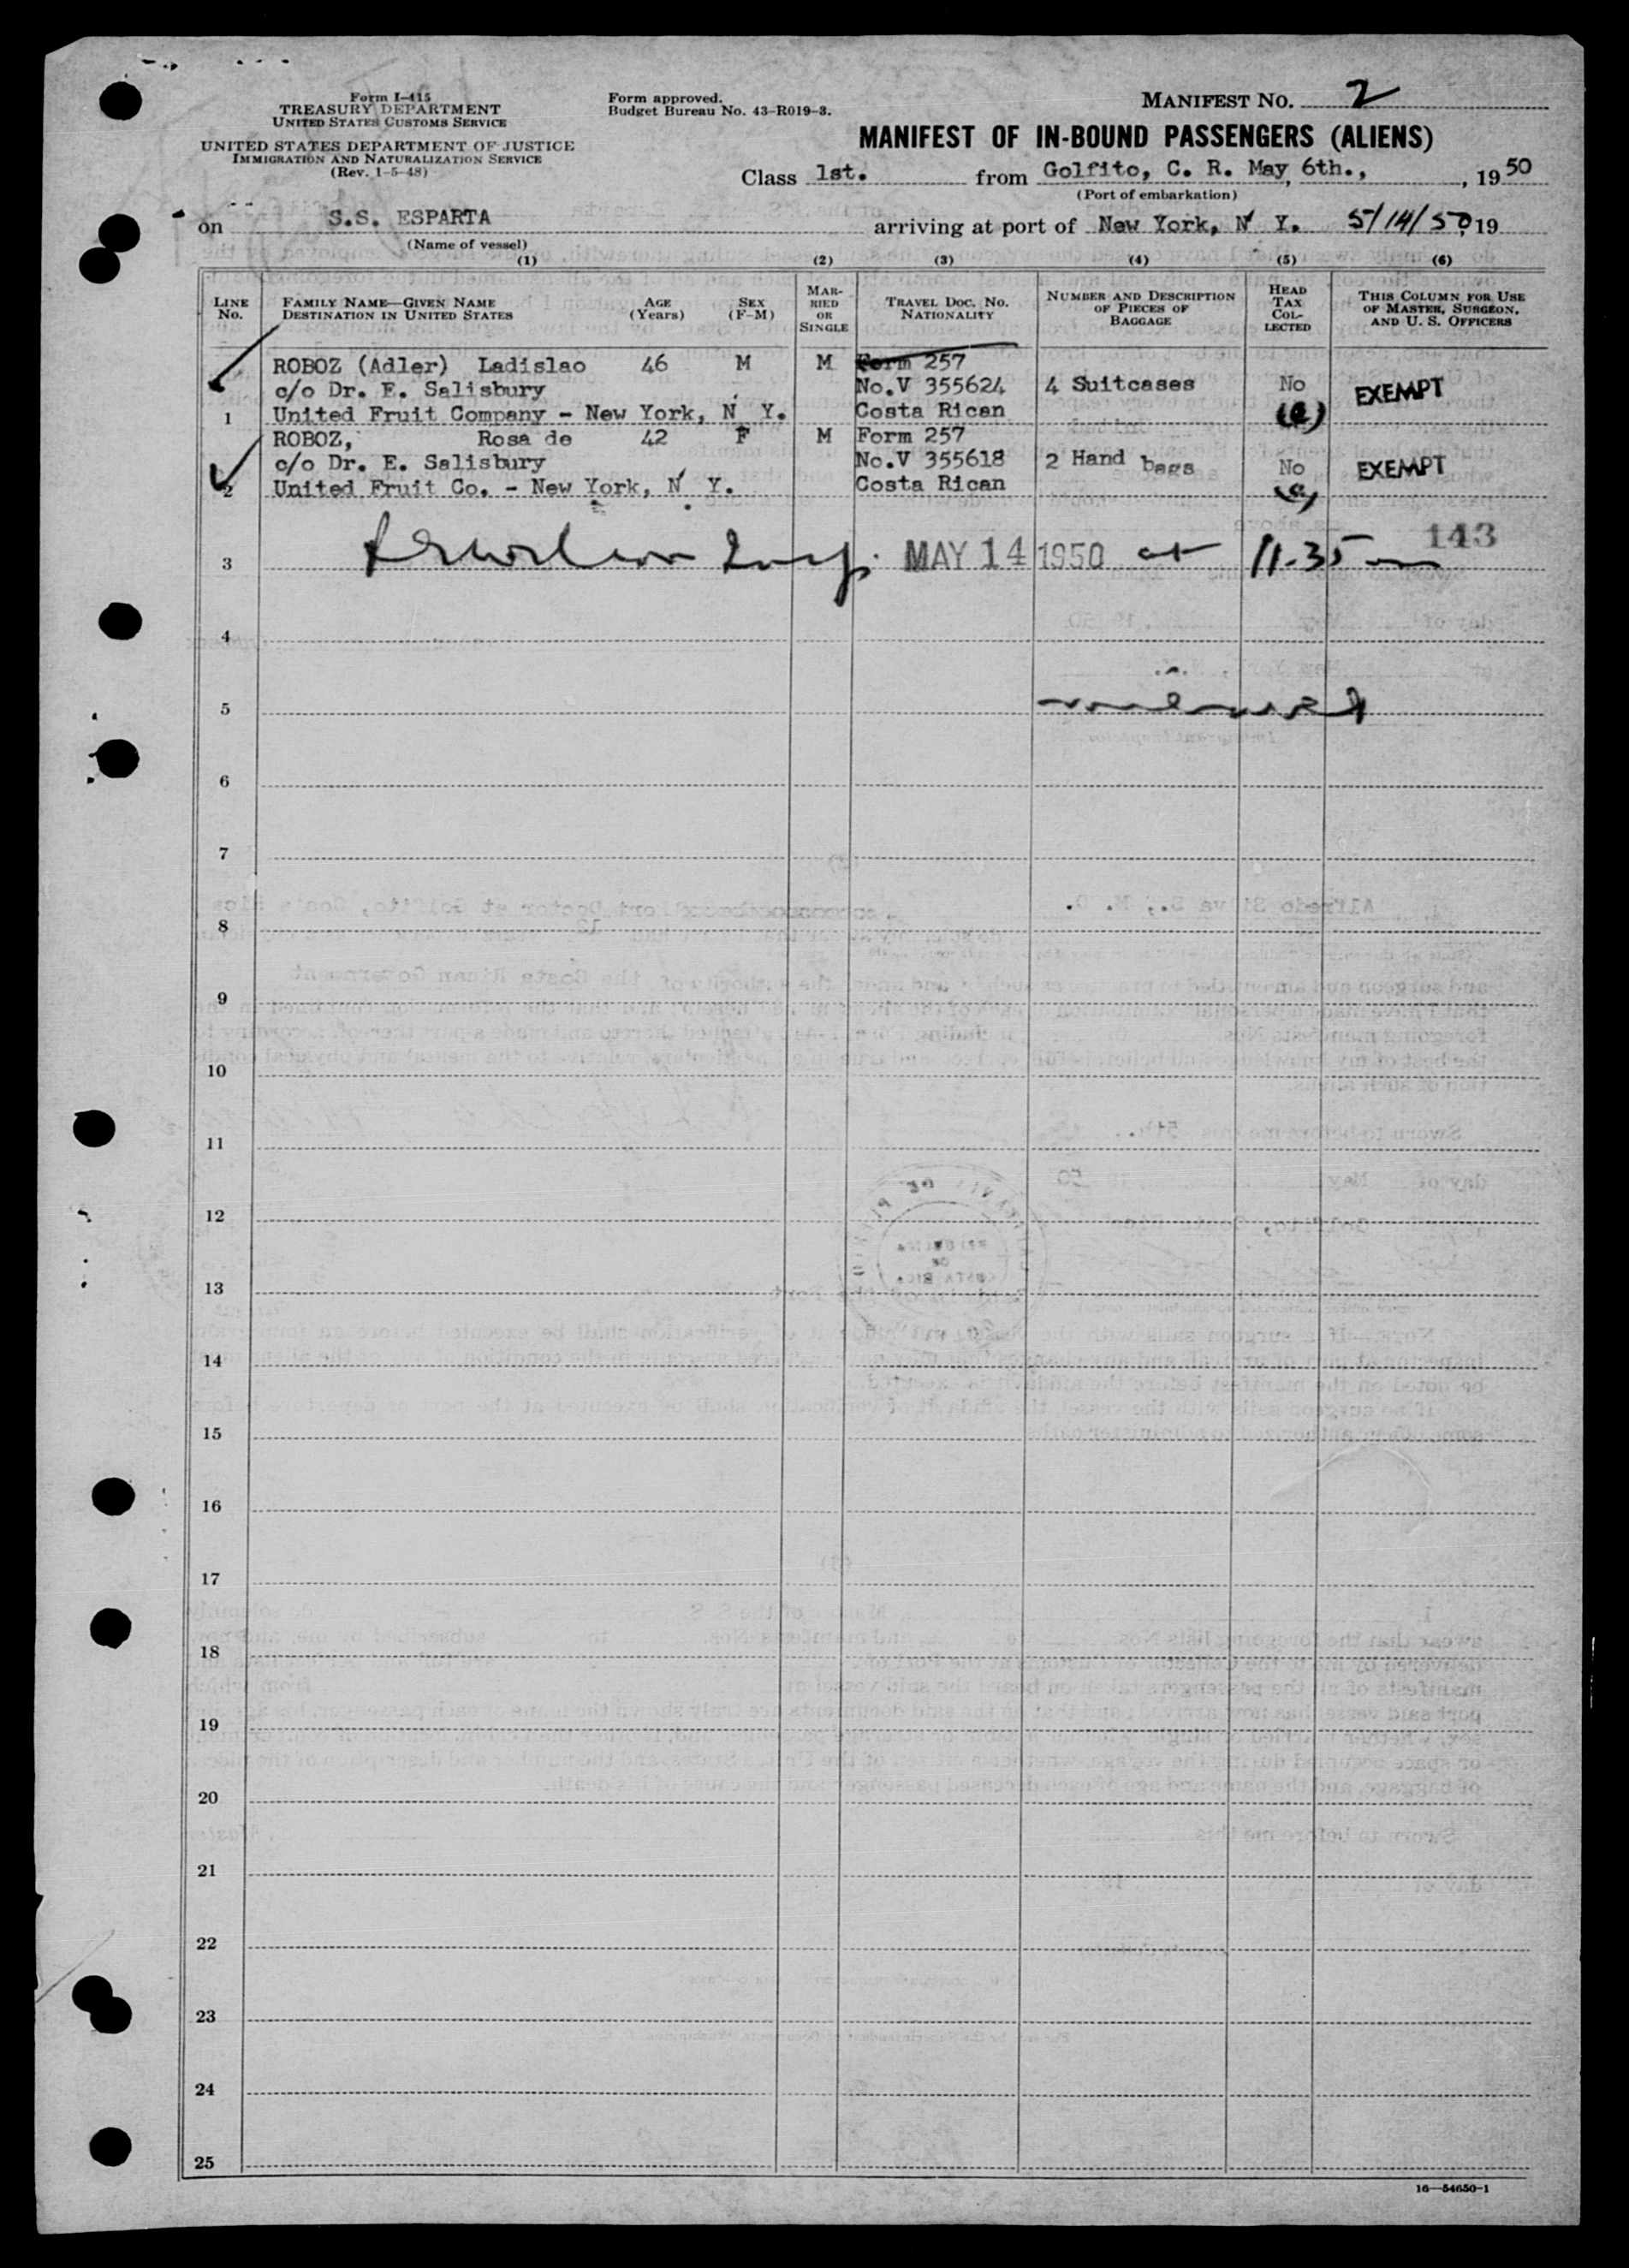 Form I-415
TREASURY DEPARTMENT
UNITED STATES CUSTOMS SERVICE
UNITED STATES DEPARTMENT OF JUSTICE
IMMIGRATION AND NATURALIZATION SERVICE
(Rev. 1-5-48)
Form approved.
Budget Bureau No. 43-R019-3.
MANIFEST NO. 2
MANIFEST OF IN-BOUND PASSENGERS (ALIENS)
Class 1st. from Golfito, C. R. May 6th., , 1950
(Port of embarkation)
on S.S. ESPARTA arriving at port of New York, N Y. 5/14/50, 19
(Name of vessel)
(1) (2) (3) (4) (5) (6)
LINE No. FAMILY NAME—GIVEN NAME DESTINATION IN UNITED STATES AGE (Years) SEX (F-M) MARRIED OR SINGLE TRAVEL DOC. NO. NATIONALITY NUMBER AND DESCRIPTION OF PIECES OF BAGGAGE HEAD TAX COLLECTED THIS COLUMN FOR USE OF MASTER, SURGEON, AND U. S. OFFICERS
ROBOZ (Adler) Ladislao 46 M M Form 257
c/o Dr. E. Salisbury No.V 355624 4 Suitcases No EXEMPT
1 United Fruit Company - New York, N Y. Costa Rican
ROBOZ, Rosa de 42 F M Form 257
c/o Dr. E. Salisbury No.V 355618 2 Hand bags No EXEMPT
2 United Fruit Co. - New York, N Y. Costa Rican
143
3 MAY 14 1950 at 11.35
4
5
6
7
8
9
10
11
12
13
14
15
16
17
18
19
20
21
22
23
24
25
16—54650-1